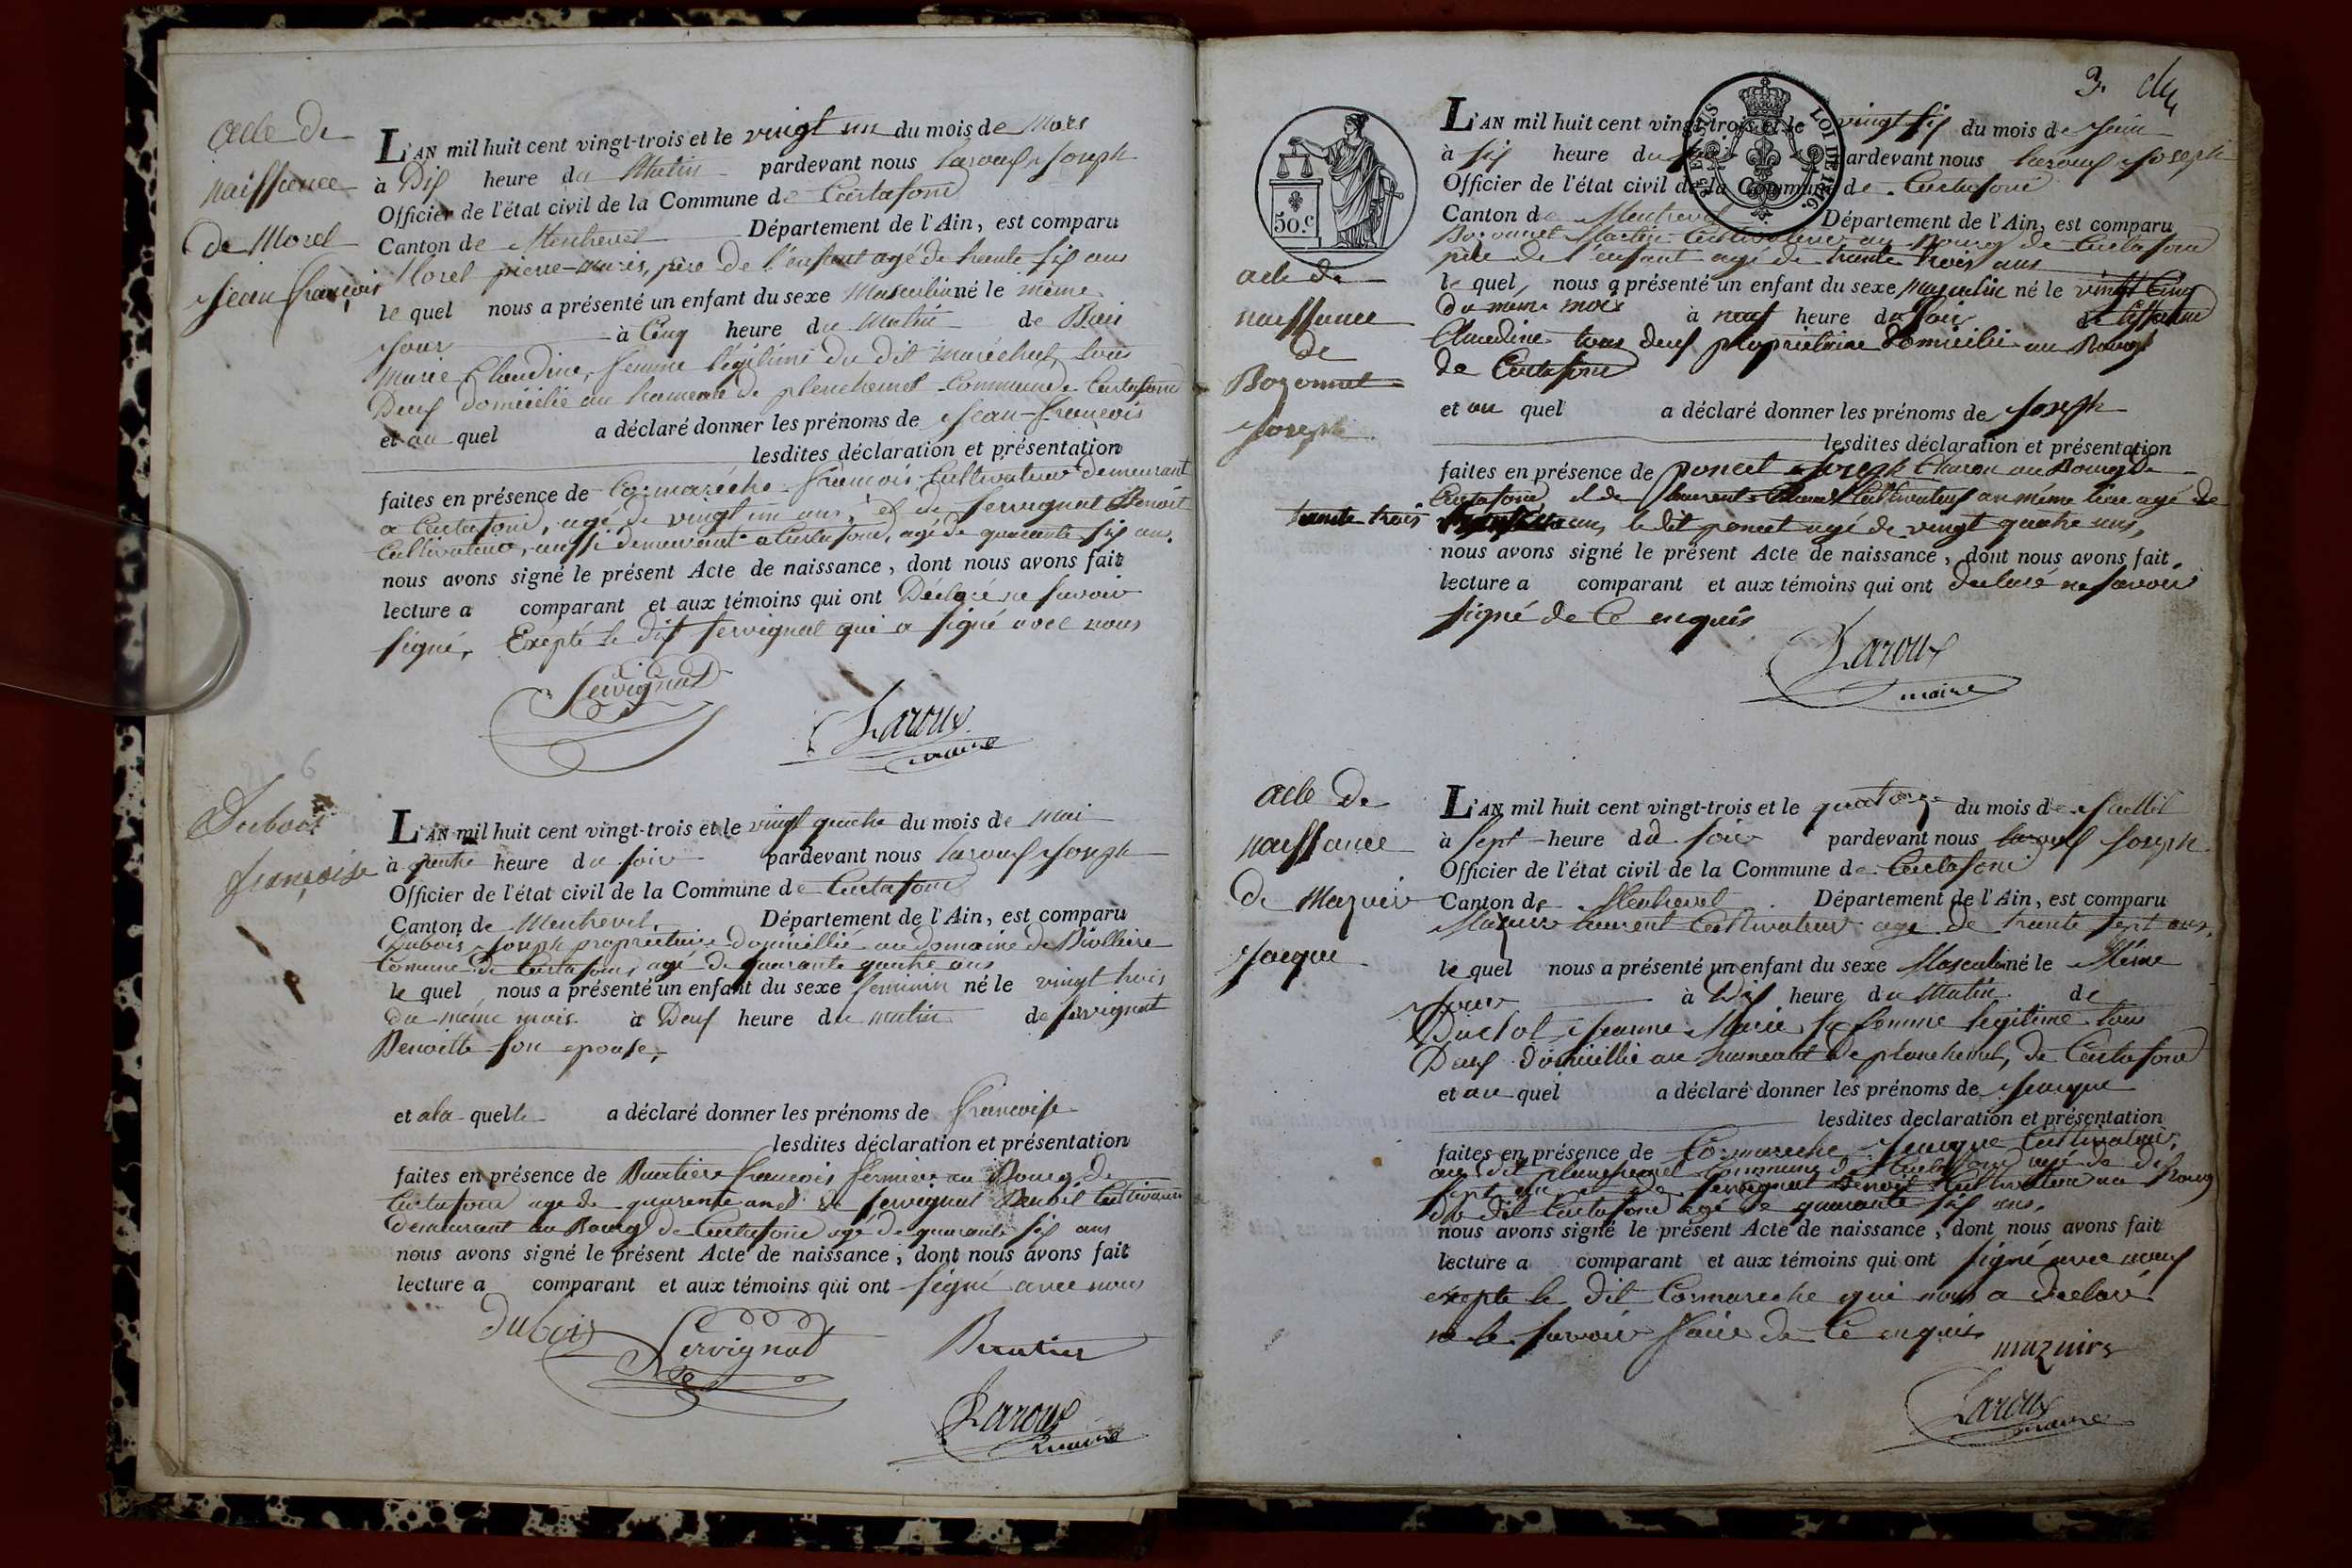 acte de
naissance
de Morel
Jean françois
L'AN mil huit cent vingt-trois et le vingt un du mois de Mars
à Dix heure du Matin pardevant nous laroux Joseph
Officier de l'état civil de la Commune de Curtafond
Canton de Montrevel Département de l'Ain, est comparu
Morel pierre-marie, père de l'enfant agé de trente six ans
le quel nous a présenté un enfant du sexe Masculin né le même
jour à Cinq heure du Matin de
Marie Claudine, femme légitime du dit tous
Deux domicilié au hameau de planchemel Commune de Curtafond
et au quel a déclaré donner les prénoms de Jean-françois
lesdites déclaration et présentation
faites en présence de Cormarèche françois Cultivateur demeurant
a Curtafond, agé de vingt un ans, et de Servignat Benoit
Cultivateur, aussi demeurant a Curtafond, agé de quarante six ans.
nous avons signé le présent Acte de naissance, dont nous avons fait
lecture a comparant et aux témoins qui ont Déclaré ne savoir
signé, Exépté le dit Servignat qui a signé avec nous
Servignat
Laroux
maire
Dubois
françoise
L'AN mil huit cent vingt-trois et le vingt quatre du mois de mai
à quatre heure du soir pardevant nous laroux Joseph
Officier de l'état civil de la Commune de Curtafond
Canton de Montrevel. Département de l'Ain, est comparu
Dubois Joseph propriétaire domicillié au domaine de Biolliere
Comune de Curtafond, agé de quarante quatre ans
le quel nous a présenté un enfant du sexe feminin né le vingt trois
du même mois à Deux heure du matin de Servignat
Benoitte son epouse,
et a la quelle a déclaré donner les prénoms de françoise
lesdites déclaration et présentation
faites en présence de françois fermier au Bourg de
Curtafond age de quarente ans et de Servignat Benoit Cultivateur
demeurant au Bourg de Curtafond agé de quarante six ans
nous avons signé le présent Acte de naissance; dont nous avons fait
lecture a comparant et aux témoins qui ont signé avec nous
dubois
Servignat
Laroux
maire
3.
50.c
LOI DE 1816.
acte de
naissance
de
Bozonnet
Joseph
L'AN mil huit cent vingt-trois et le vingt six du mois de Juin
à six heure du soir pardevant nous laroux Joseph
Officier de l'état civil de la Commune de Curtafond
Canton de Montrevel Département de l'Ain, est comparu
Bozonnet Martin Cultivateur au Bourg de Curtafond
père de l'enfant agé de trente trois ans
le quel, nous a présenté un enfant du sexe masculin né le vingt Cinq
du même mois à neuf heure du soir de
Claudine tous deux propriétaire domicilié au Bourg
de Curtafond
et au quel a déclaré donner les prénoms de Joseph
lesdites déclaration et présentation
faites en présence de poncet Joseph Charon au Bourg de
Curtafond et de laurent Cultivateur au même lieu agé de
trente trois ans, le dit poncet agé de vingt quatre ans,
nous avons signé le présent Acte de naissance, dont nous avons fait
lecture a comparant et aux témoins qui ont declaré ne savoir
signé de Ce enquis
Laroux
maire
acte de
naissance
de Mazuir
Jacque
L'AN mil huit cent vingt-trois et le quatorze du mois de Juillet
à Sept heure du soir pardevant nous laroux Joseph
Officier de l'état civil de la Commune de Curtafond
Canton de Montrevel. Département de l'Ain, est comparu
Mazuir laurent Cultivateur agé de trente sept ans,
le quel nous a présenté un enfant du sexe Masculin né le Même
jour à Dix heure du Matin de
Duclot Jeanne Marie sa femme legitime tous
Deux domicillié au hameaux de planchemel, de Curtafond
et au quel a déclaré donner les prénoms de Jacque
lesdites declaration et présentation
faites en présence de Cormareche Jacque Cultivateur,
au dit planchemel Commune de Curtafond agé de dix
sept ans et de Servignat Benoit Cultivateur au Bourg
du dit Curtafond agé de quarante six ans,
nous avons signé le présent Acte de naissance, dont nous avons fait
lecture a comparant et aux témoins qui ont signé avec nous
exepte le dit Cormareche qui nous a declaré
ne le savoir faire de Ce enquis
mazuire
Laroux
maire